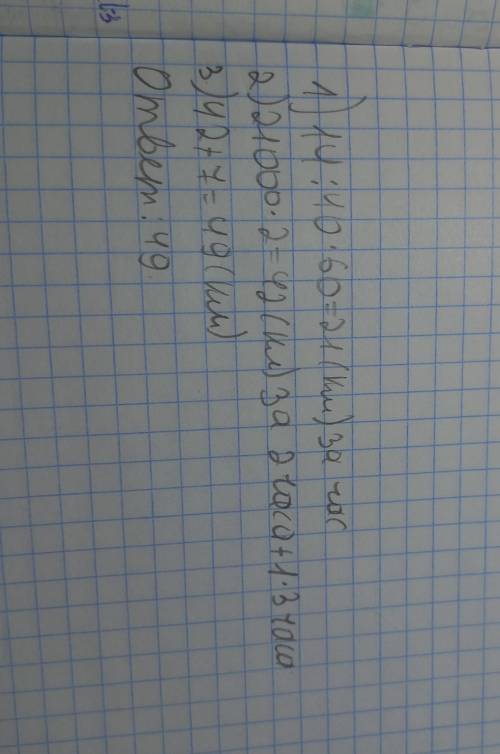 1) 14 : 40 · 60 = 21 (км) за час
2) 21000 · 2 = 42 (км) за 2 часа + 1·3 часа
3) 42 + 7 = 49 (км)
Ответ: 49.